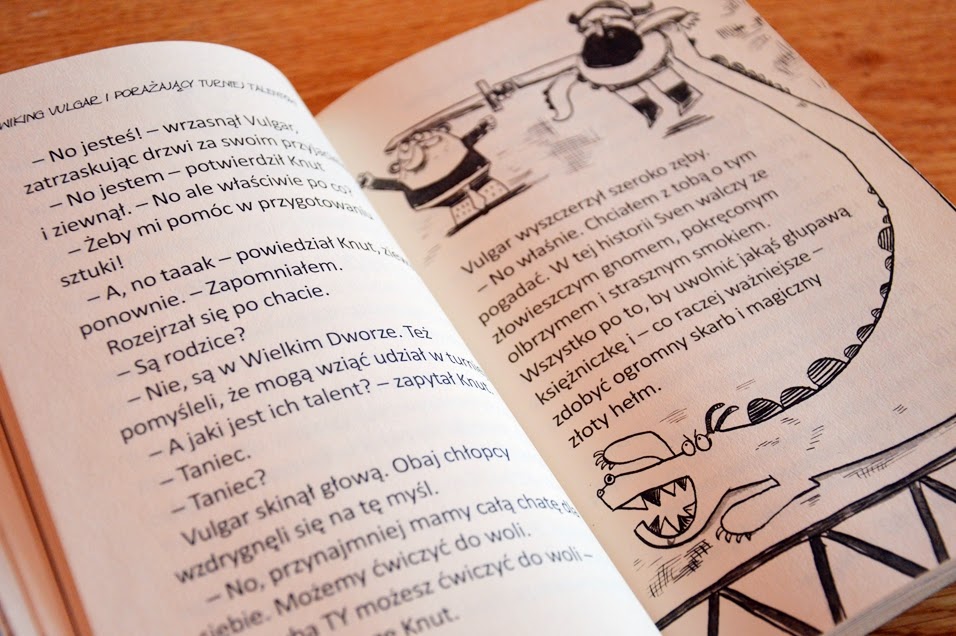 WIKING VULGAR I PORAŻAJĄCY TURNIEJ TALENTÓW
– No jesteś! – wrzasnął Vulgar,
zatrzaskując drzwi za swoim
– No jestem – potwierdził Knut
i ziewnął. – No ale właściwie po co?
– Żeby mi pomóc w przygotowaniu
sztuki!
– A, no taaak – powiedział Knut,
ponownie. – Zapomniałem.
Rozejrzał się po chacie.
– Są rodzice?
– Nie, są w Wielkim Dworze. Też
pomyśleli, że mogą wziąć udział w
– A jaki jest ich talent? – zapytał Knut.
– Taniec.
– Taniec?
Vulgar skinął głową. Obaj chłopcy
wzdrygnęli się na tę myśl.
– No, przynajmniej mamy całą chatę
siebie. Możemy ćwiczyć do woli.
TY możesz ćwiczyć do woli –
Knut.
Vulgar wyszczerzył szeroko zęby.
– No właśnie. Chciałem z tobą o tym
pogadać. W tej historii Sven walczy ze
złowieszczym gnomem, pokręconym
olbrzymem i strasznym smokiem.
Wszystko po to, by uwolnić jakąś głupawą
księżniczkę i – co raczej ważniejsze –
zdobyć ogromny skarb i magiczny
złoty hełm.